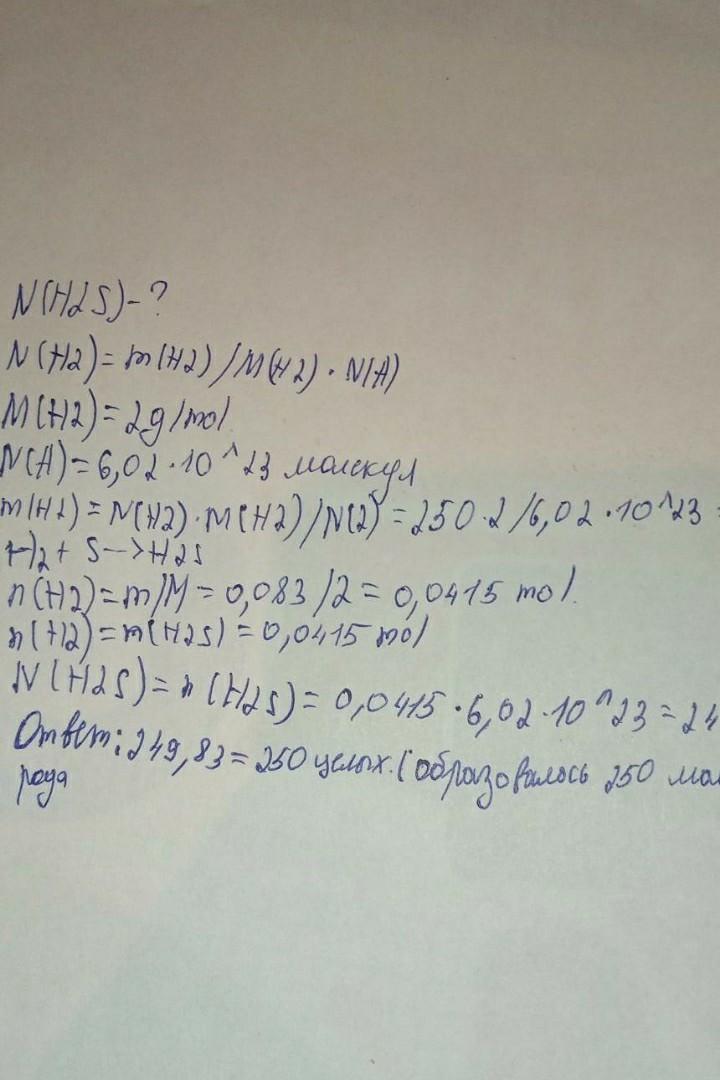 N(H2S)-?
N(H2)=m(H2)/M(H2)·N(A)
M(H2)=2g/mol
N(A)=6,02·10^23 молекул
m(H2)=N(H2)·M(H2)/N(2)=250·2/6,02·10^23=
H2+S-->H2S
n(H2)=m/M=0,083/2=0,0415 mol.
n(H2)=n(H2S)=0,0415 mol
N(H2S)=n(H2S)=0,0415·6,02·10^23=24
Ответ: 249,83=250 целых.(образовалось 250 мол
рода